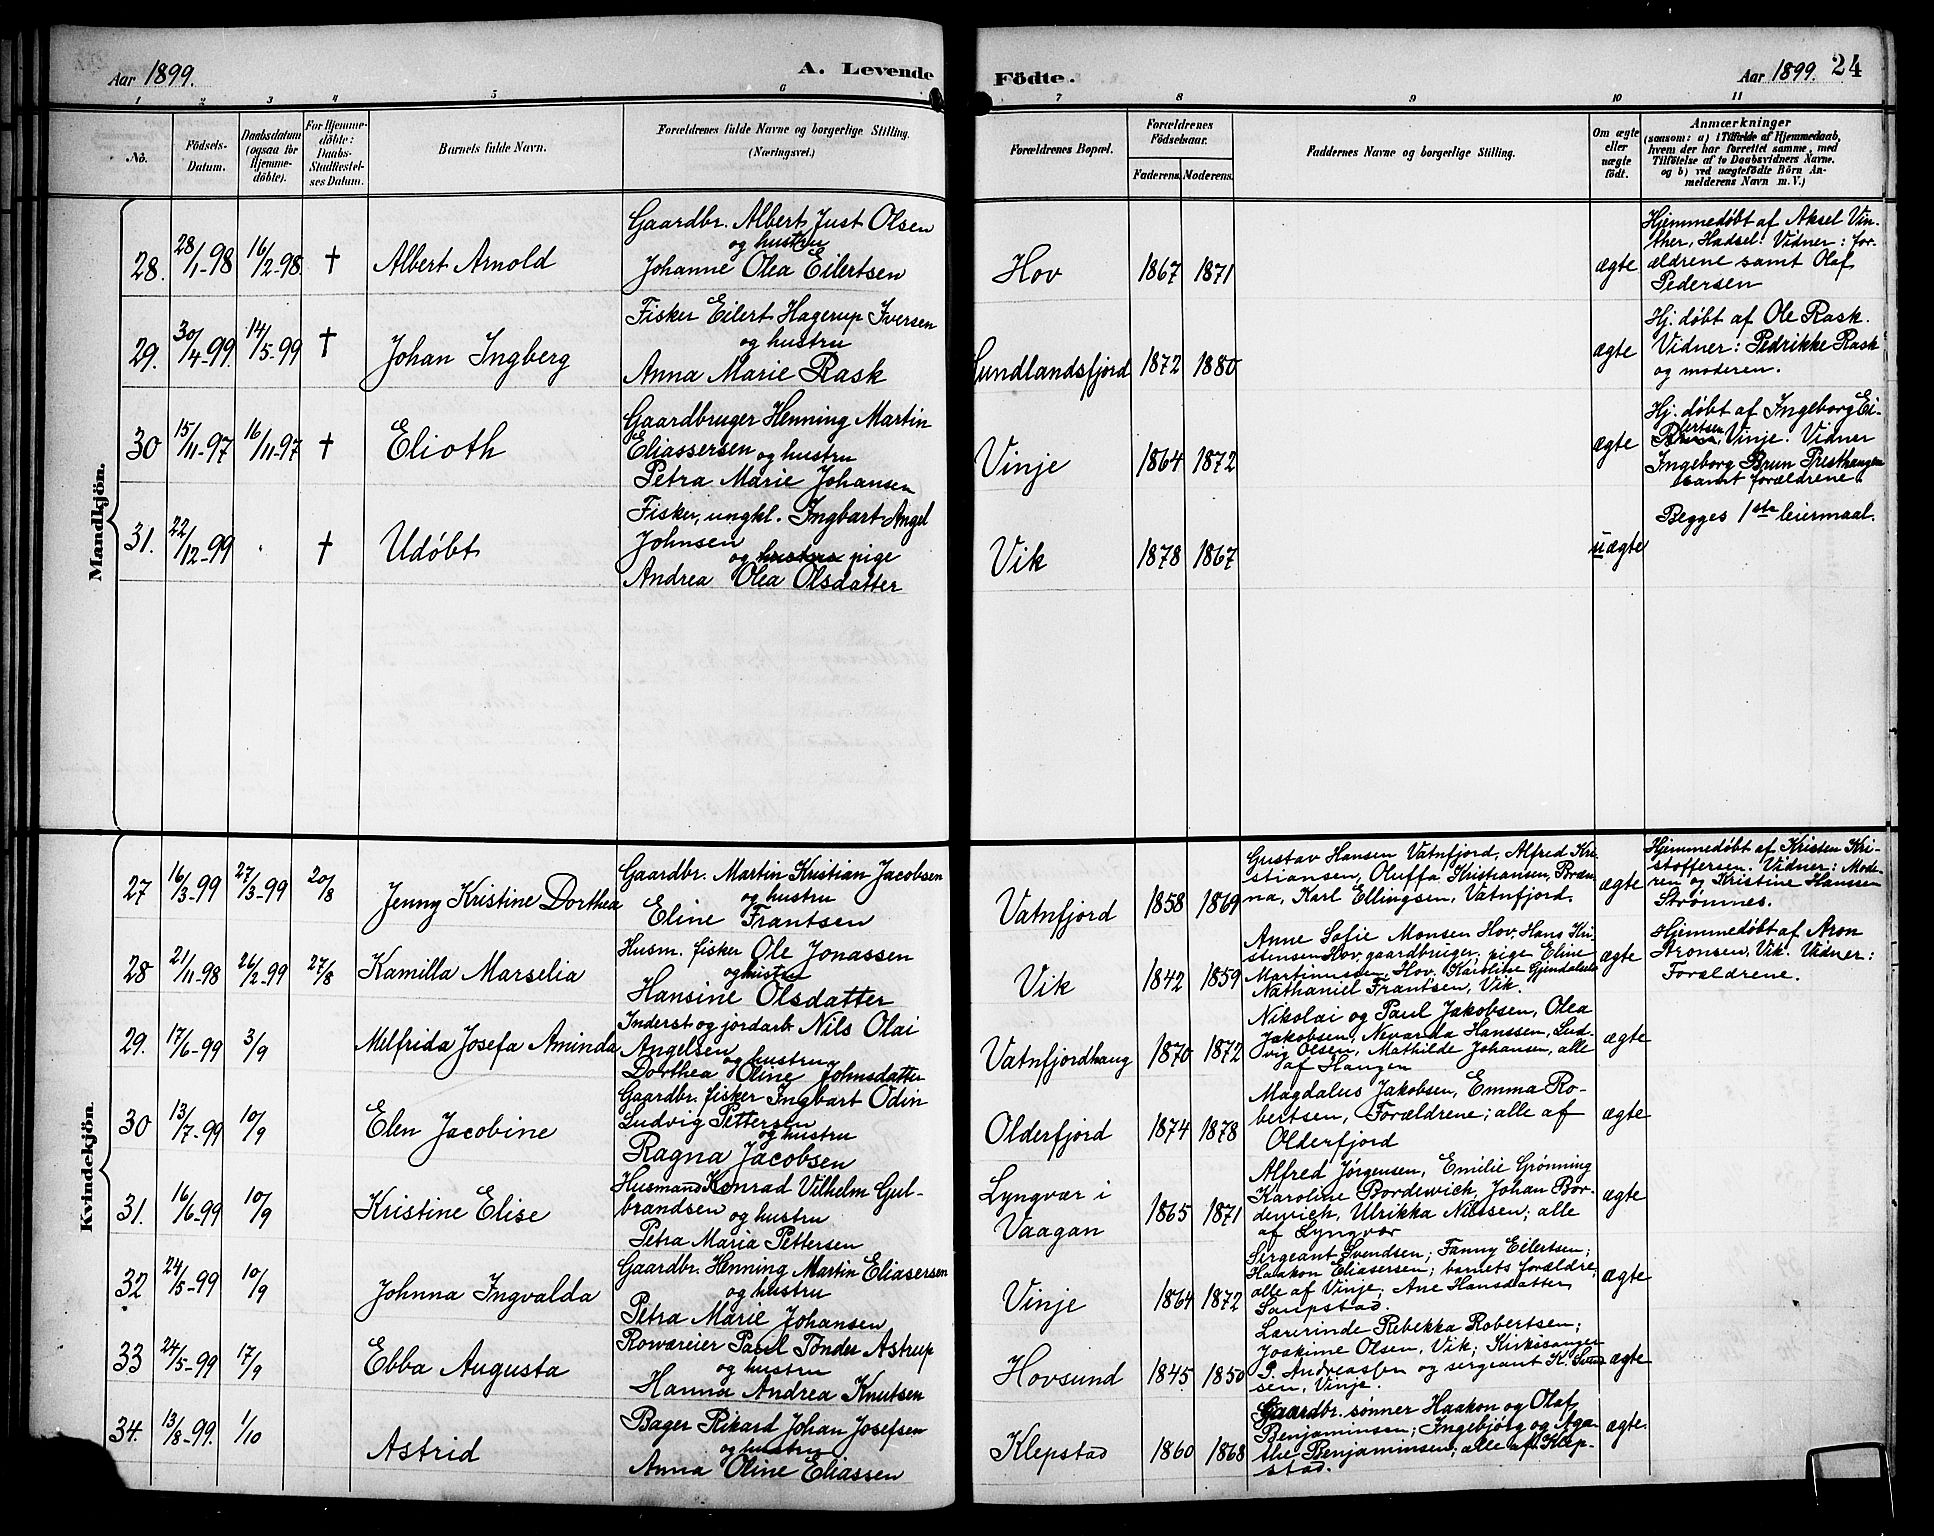 Aar 1899.
A. Levende
Födte.
Aar 1899. 24
1 2 3 4 5 6 7 8 9 10 11
No.
Födsels-
Datum.
Daabsdatum
(ogsaa for
Hjemme-
döbte).
For Hjemme-
döbte:
Daabs-
Stadfæstel-
ses Datum.
Barnets fulde Navn.
Forældrenes fulde Navne og borgerlige Stilling.
(Næringsvei.)
Forældrenes Bopæl.
Forældrenes
Födselsaar.
Faderens. Moderens.
Faddernes Navne og borgerlige Stilling.
Om ægte
eller
uægte
födt.
Anmærkninger
(saasom: a) i Tilfælde af Hjemmedaab,
hvem der har forrettet samme, med
Tilföielse af to Daabsvidners Navne.
og b) ved uægtefödte Börn An-
melderens Navn m. V.)
Mandkjön.
28. 28/1-98 16/2-98 † Albert Arnold
Gaardbr. Albert Just Olsen
og hustru
Johanne Olea Eilertsen
Hov 1867 1871 ægte
Hjemmedøbt af Aksel Vin-
ther, Hadsel. Vidner: for-
ældrene samt Olaf
Pedersen
29. 30/4-99. 14/5-99 † Johan Ingberg
Fisker Eilert Hagerup Iversen
og hustru
Anna Marie Rask
Sundlandsfjord 1872 1880 ægte
Hj. døbt af Ole Rask.
Vidner: Pedrikke Rask
og moderen.
30 15/11-97 16/11-97 † Elioth
Gaardbruger Henning Martin
Eliassersen og hustru
Petra Marie Johansen
Vinje 1864 1872 ægte
Hj. døbt af Ingeborg Ei-
lertsen
Brun, Vinje. Vidner
Ingeborg Brun Presthaugen
samt forældrene.
31. 22/12-99 . † Udøbt
Fisker, ungkl. Ingbart Angel
Johnsen
og hustru pige
Andrea Olea Olsdatter
Vik 1878 1867 uægte
Begges 1ste leiermaal.
Kvindekjön.
27 16/3-99 27/3-99 20/8 Jenny Kristine Dorthea
Gaardbr. Martin Kristian Jacobsen
og hustru
Eline Frantsen
Vatnfjord 1858 1869
Gustav Hansen Vatnfjord, Alfred Kri-
stiansen, Oluffa Kristiansen, Bræn-
na, Karl Ellingsen, Vatnfjord.
ægte
Hjemmedøbt af Kristen Kri-
stoffersen. Vidner: Mode-
ren og Kristine Hanssen
Strømnes.
28 21/11-98 26/2-99 27/8 Kamilla Marselia
Husm. fisker Ole Jonassen
og hustru
Hansine Olsdatter
Vik 1842 1859
Anne Sofie Monsen Hov, Hans Kri-
stensen Hov, gaardbruger, pige Eline
Martinussen, Hov, Karoline Gjendalsen
Nathaniel Frantsen, Vik.
ægte
Hjemmedøbt af Aron
Aronsen, Vik. Vidner:
Forældrene.
29. 17/6-99 3/9 Melfrida Josefa Aminda
Inderst og jordarb. Nils Olai
Angelsen
og hustru
Dorthea Oline Johnsdatter
Vatnfjordhaug 1870 1872
Nikolai og Paul Jakobsen, Olea
Jakobsen, Nevarda Hanssen, Lud-
vig Olsen, Mathilde Johansen, alle
af Haugen
ægte
30 13/7-99 10/9 Elen Jacobine
Gaardbr. fisker Ingbart Odin
Ludvig Pettersen
og hustru
Ragna Jacobsen
Olderfjord 1874 1878
Magdalus Jakobsen, Emma Ro-
bertsen, Forældrene; alle af
Olderfjord
ægte
31. 16/6-99 10/9 Kristine Elise
Husmand Konrad Vilhelm Gul-
brandsen og hustru
Petra Maria Pettersen
Lyngvær i
Vaagan
1865 1871
Alfred Jørgensen, Emilie Grønning
Karoline Bordewich, Johan Bor-
dewich, Ulrikka Nilssen; alle
af Lyngvær
ægte
32 24/5-99 10/9 Johnna Ingvalda
Gaardbr. Henning Martin Eliasersen
og hustru
Petra Marie Johansen
Vinje 1864 1872
Sergeant Svendsen; Fanny Eilertsen;
Haakon Eliasersen; barnets forældre;
alle af Vinje; Ane Hansdatter
Saupstad.
ægte
33 24/5-99 17/9 Ebba Augusta
Rorværeier Paul Tønder Astrup
og hustru
Hanna Andrea Knutsen
Hovsund 1845 1850
Lærerinde Rebekka Robertsen;
Joakime Olsen, Vik; Kirkesanger
P. Andreassen og sergeant K. Svend-
sen, Vinje.
ægte
34. 13/8-99. 1/10 Astrid
Bager Rikard Johan Josefsen
og hustru
Anna Oline Eliassen
Klepstad 1860 1868
Gaardbr. sønner Haakon og Olaf
Benjaminsen; Ingebjørg og Aga-
the Benjaminsen; alle af Klep-
stad.
ægte